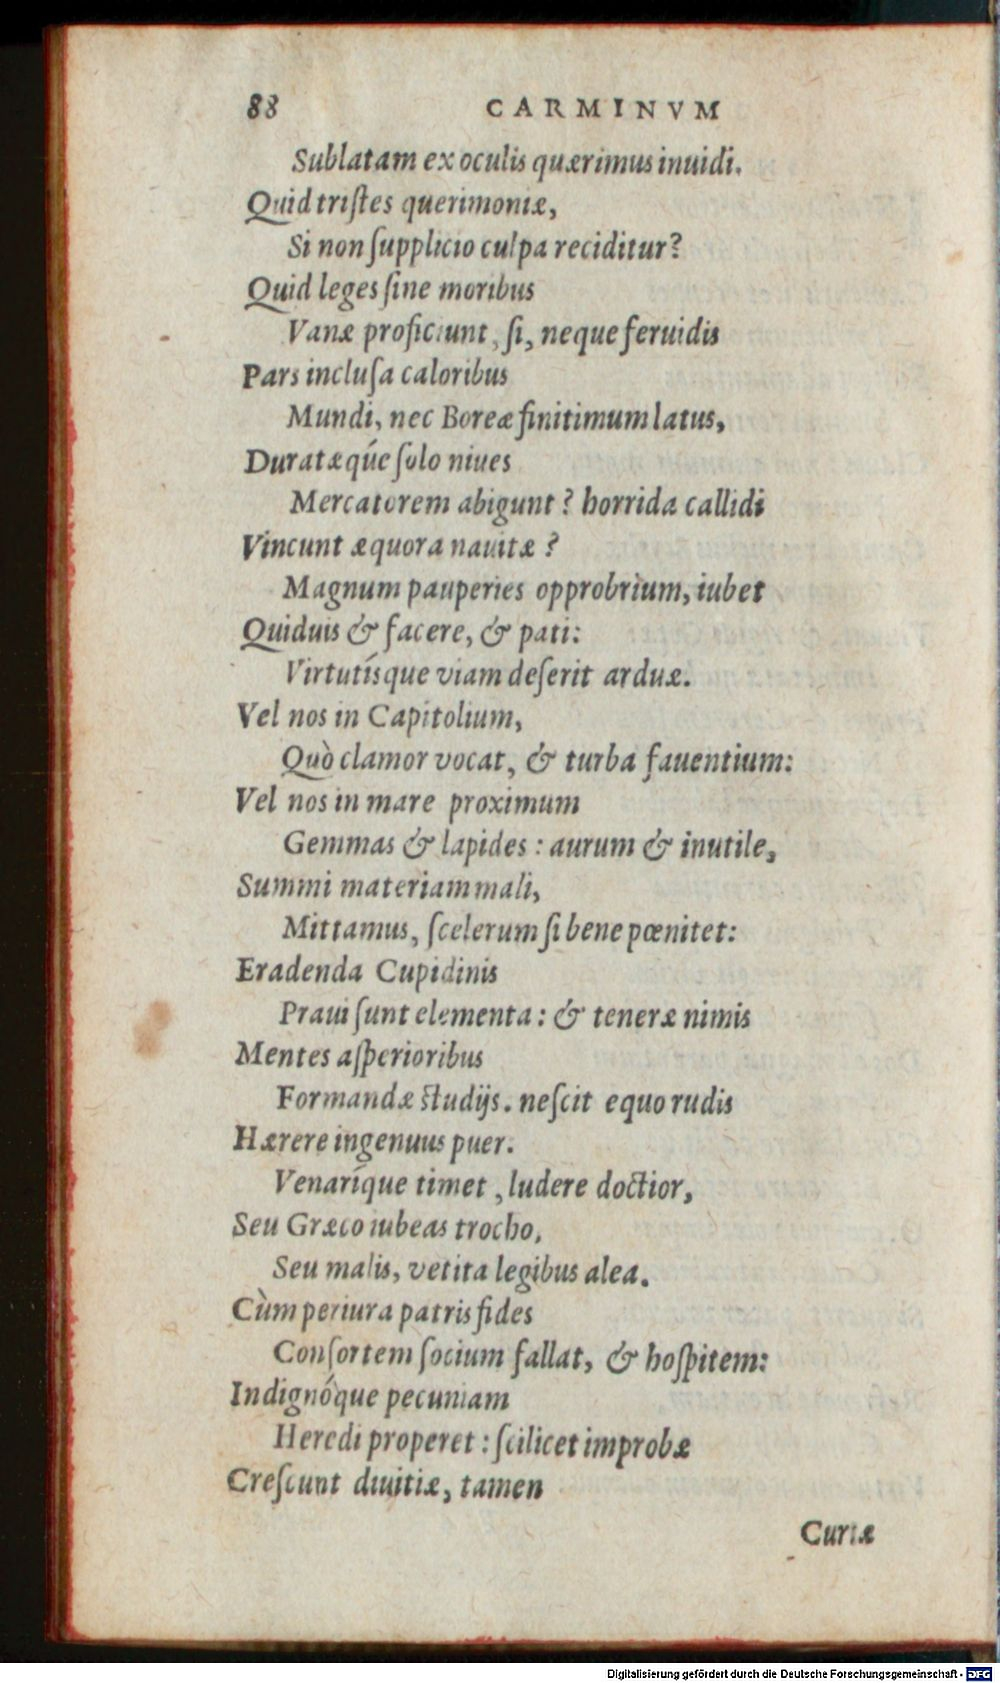 88 CARMINVM
Sublatam ex oculis quærimus inuidi.
Quid tristes querimoniæ,
Si non ſupplicio culpa reciditur?
Quid leges ſine moribus
Vanæ proficiunt, ſi, neque feruidis
Pars incluſa caloribus
Mundi, nec Boreæ finitimum latus,
Duratæq́ue ſolo niues
Mercatorem abigunt? horrida callidi
Vincunt æquora nauitæ?
Magnum pauperies opprobrium, iubet
Quiduis & facere, & pati:
Virtutísque viam deſerit arduæ.
Vel nos in Capitolium,
Quò clamor vocat, & turba fauentium:
Vel nos in mare proximum
Gemmas & lapides: aurum & inutile,
Summi materiam mali,
Mittamus, ſcelerum ſi bene pœnitet:
Eradenda Cupidinis
Praui ſunt elementa: & teneræ nimis
Mentes aſperioribus
Formandæ ſtudijs. neſcit equo rudis
Hærere ingenuus puer.
Venaríque timet, ludere doctior,
Seu Græco iubeas trocho,
Seu malis, vetita legibus alea.
Cùm periura patris fides
Conſortem ſocium fallat, & hoſpitem:
Indignóque pecuniam
Heredi properet: ſcilicet improbæ
Creſcunt diuitiæ, tamen
Curtæ
Digitalisierung gefördert durch die Deutsche Forschungsgemeinschaft - DFG